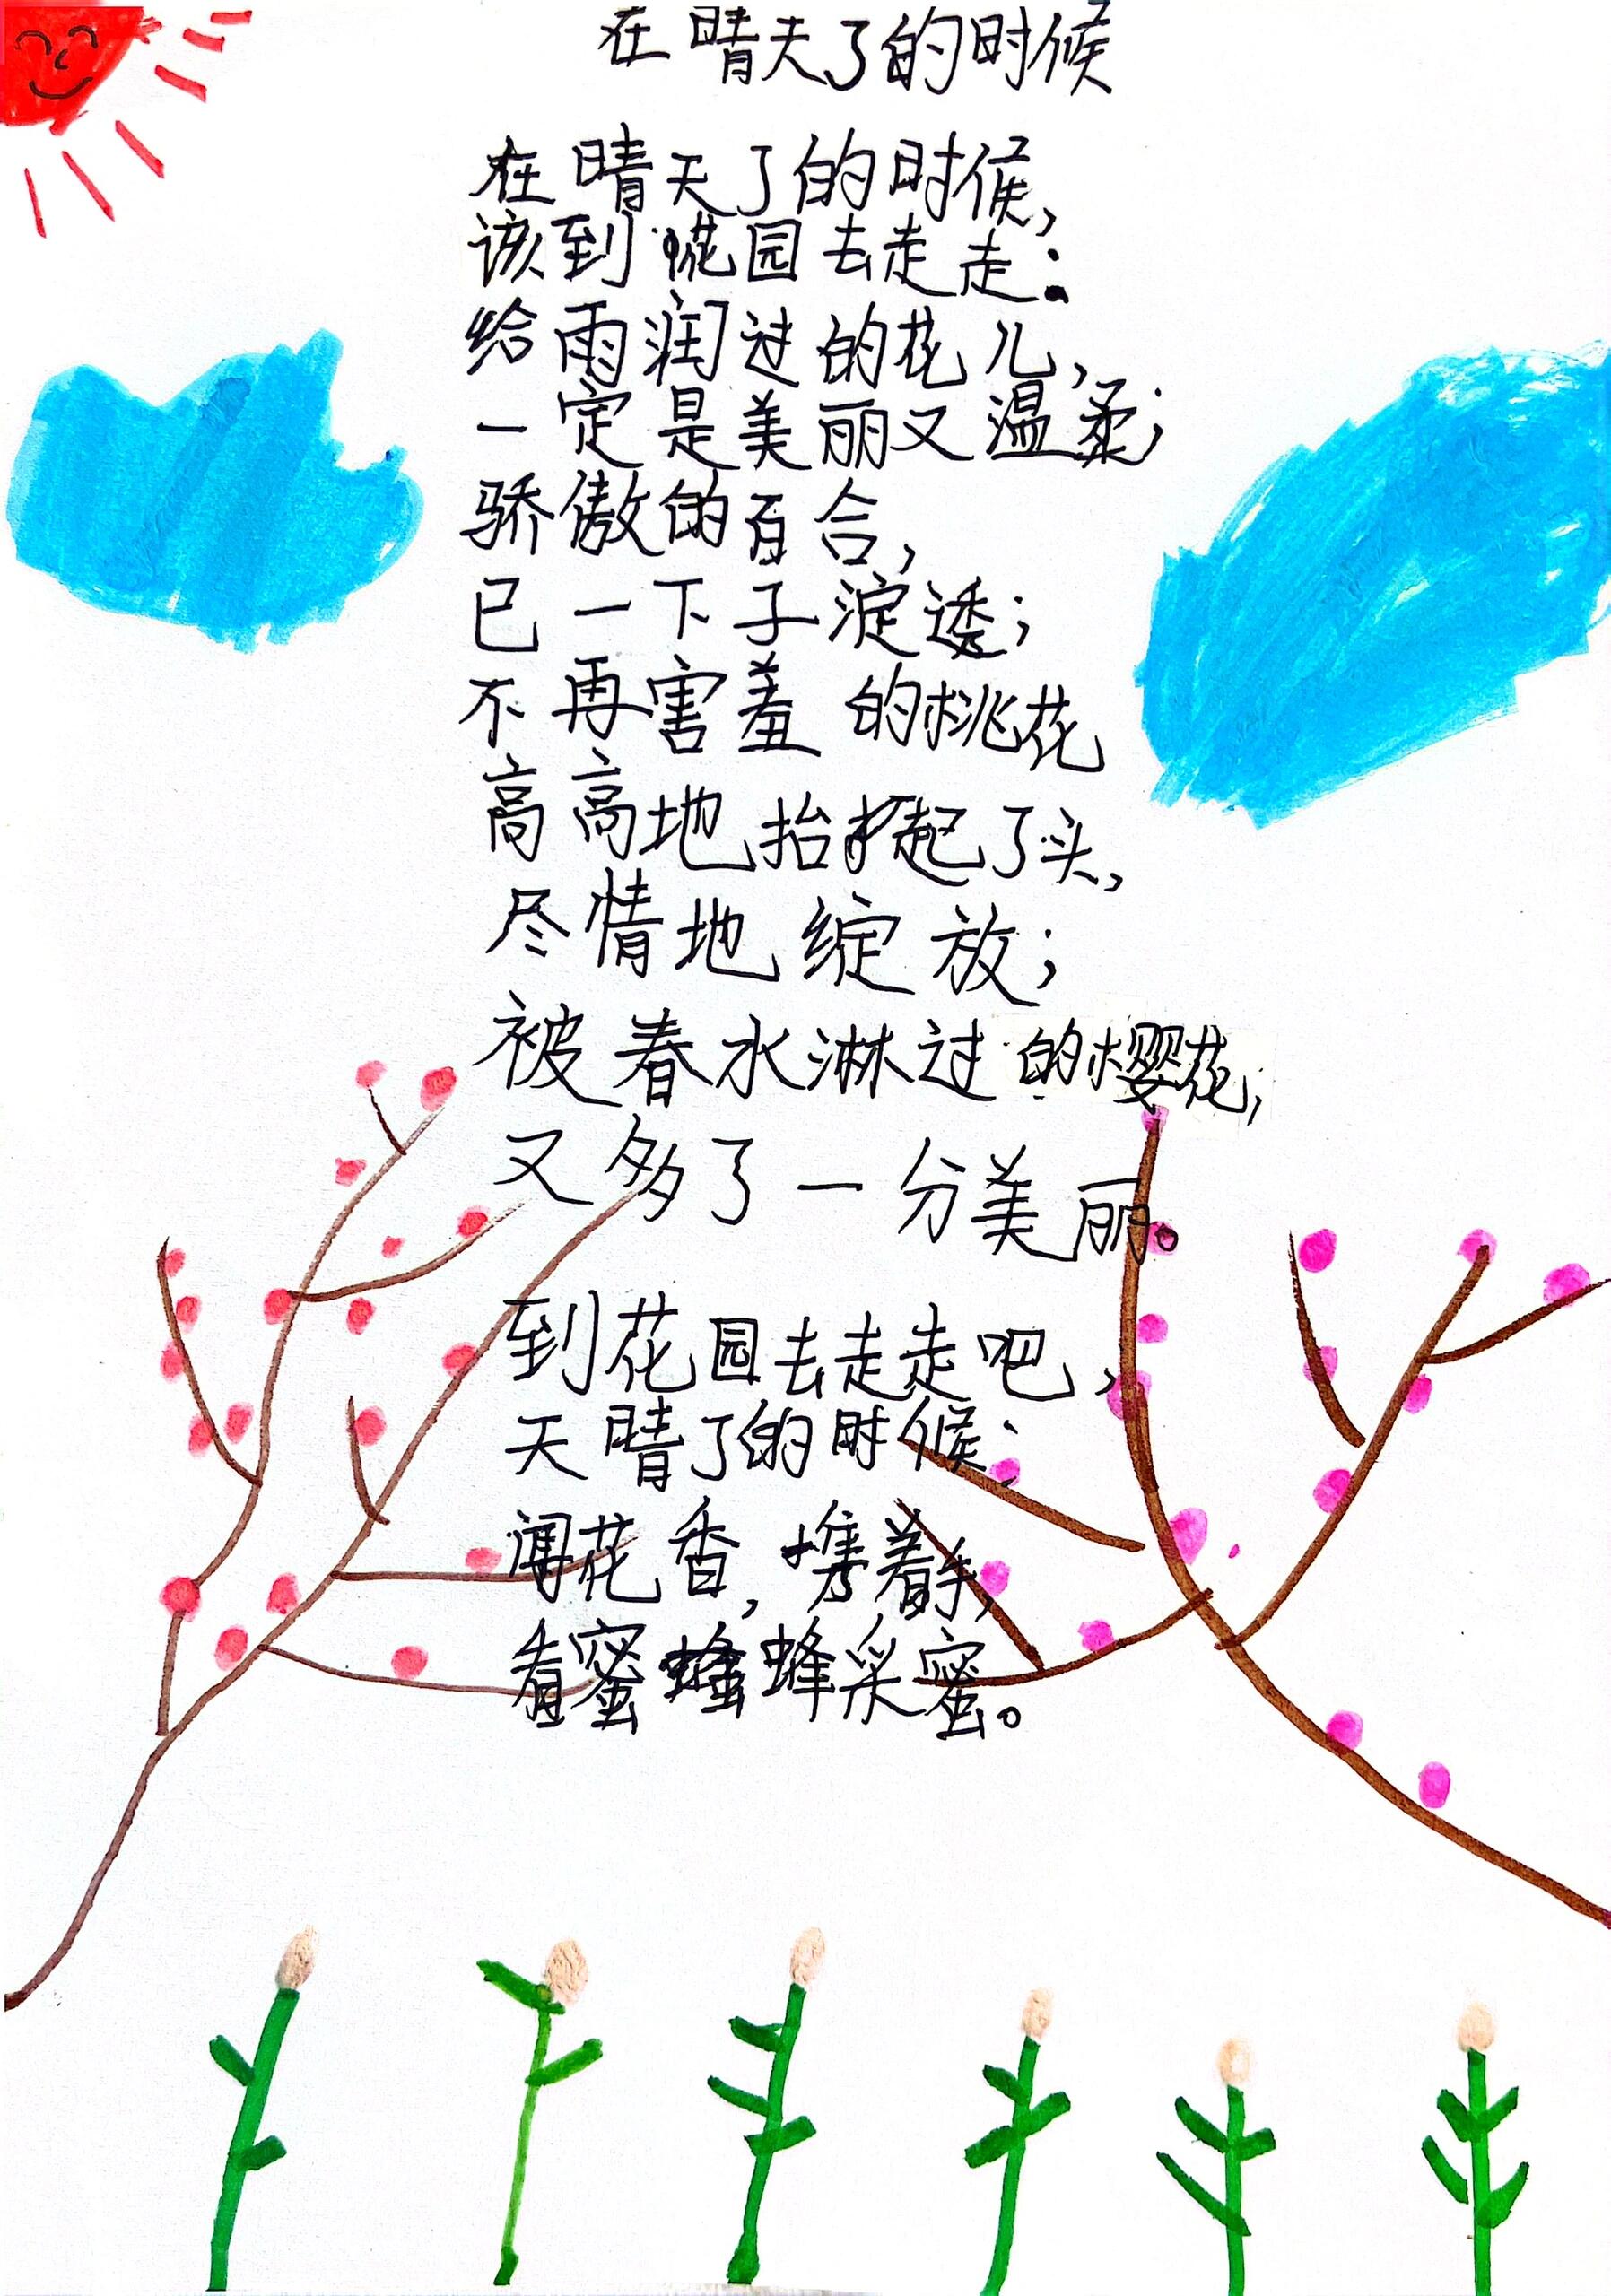 在晴天了的时候
在晴天了的时候，
该到花园去走走：
给雨润过的花儿，
一定是美丽又温柔；
骄傲的百合，
已一下子淀透；
不再害羞的桃花
高高地抬起了头，
尽情地绽放；
被春水淋过的樱花，
又多了一分美丽。
到花园去走走吧，
天晴了的时候；
闻花香，携着手，
看蜜蜂采蜜。